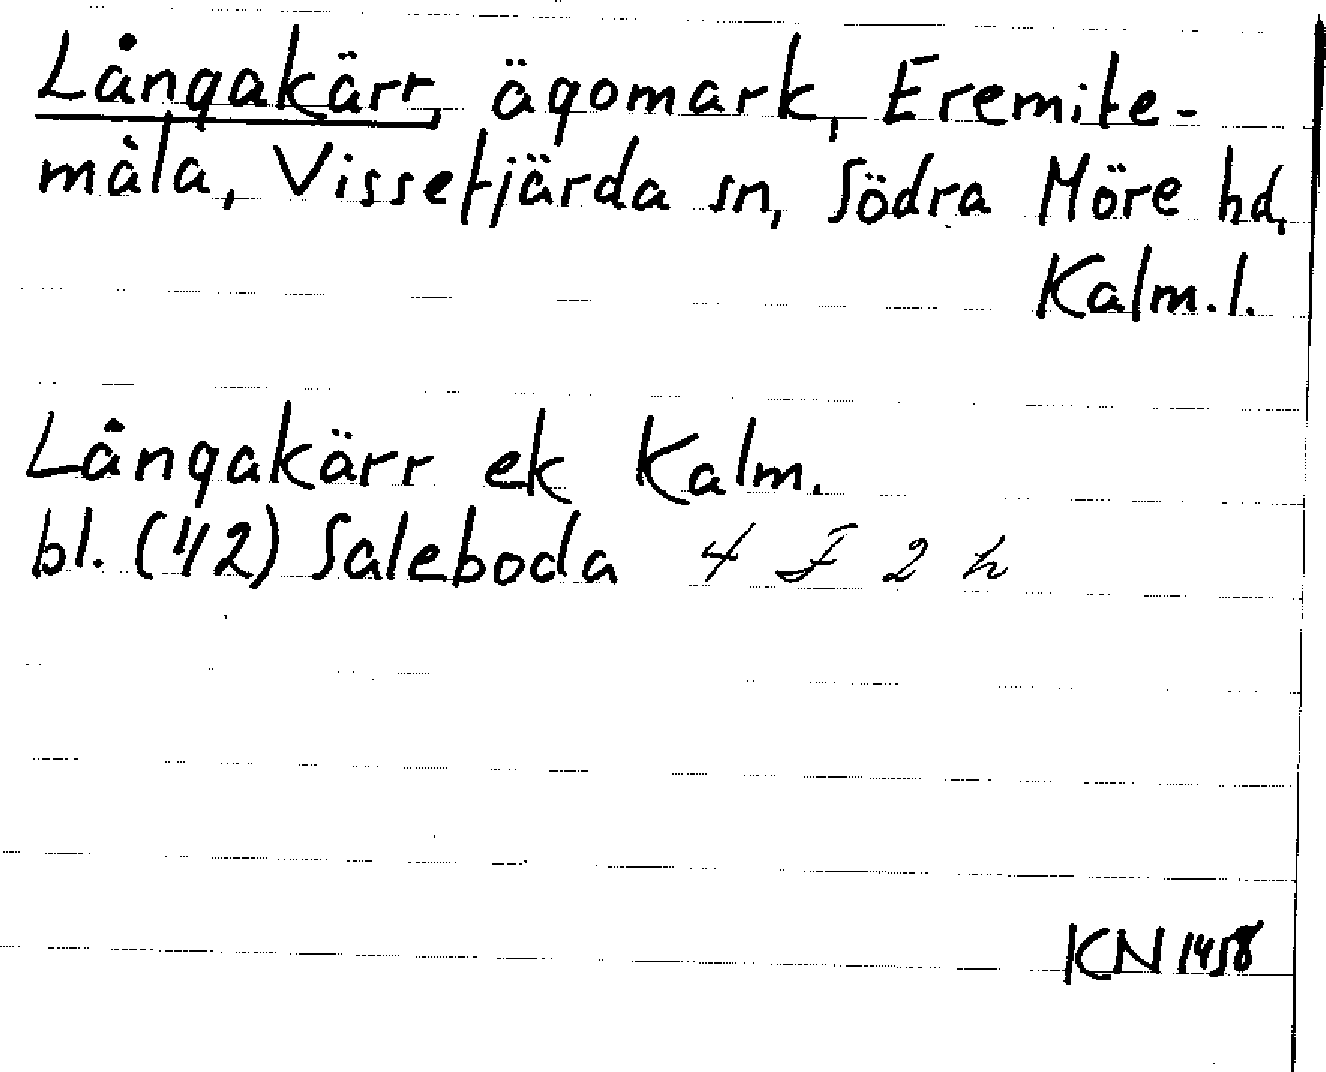 Långakärr, ägomark, Eremite-
måla, Vissefjärda sn, Södra Möre hd,
Kalm. l.
Långakärr ek Kalm.
bl. (42) Saleboda 4 F 2 h
KN 1458